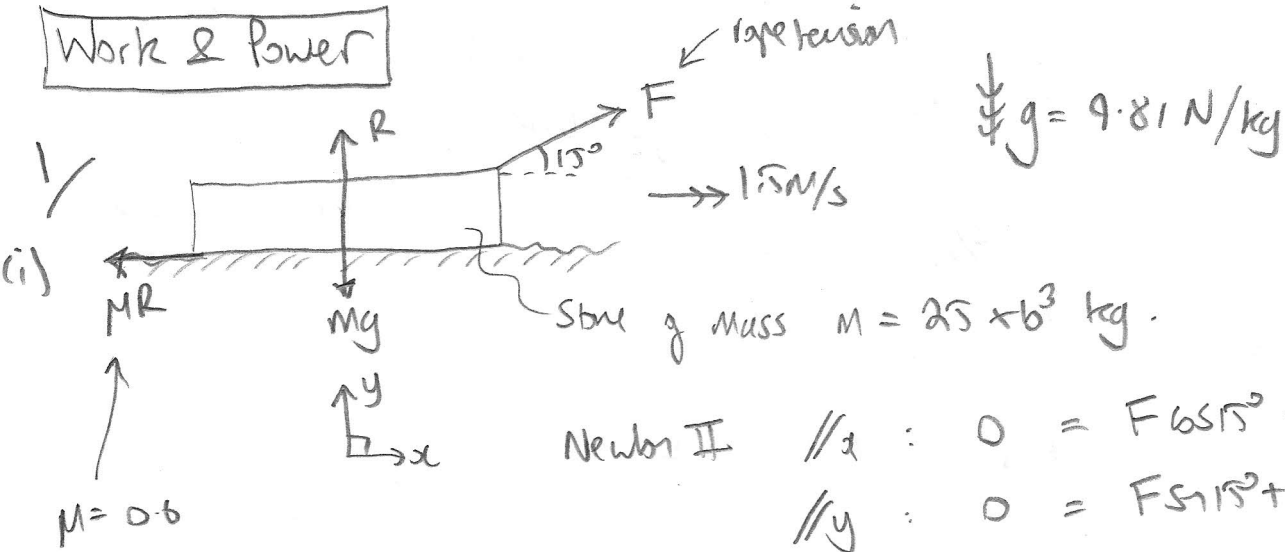 Work & Power
rope tension
F
g = 9.81 N/kg
1/
R
15°
1.5m/s
(i)
μR
Mg
Stone of mass M = 25 × 10³ kg.
y
x
μ = 0.6
Newton II //x : 0 = Fcos15°
//y : 0 = Fsin15° +